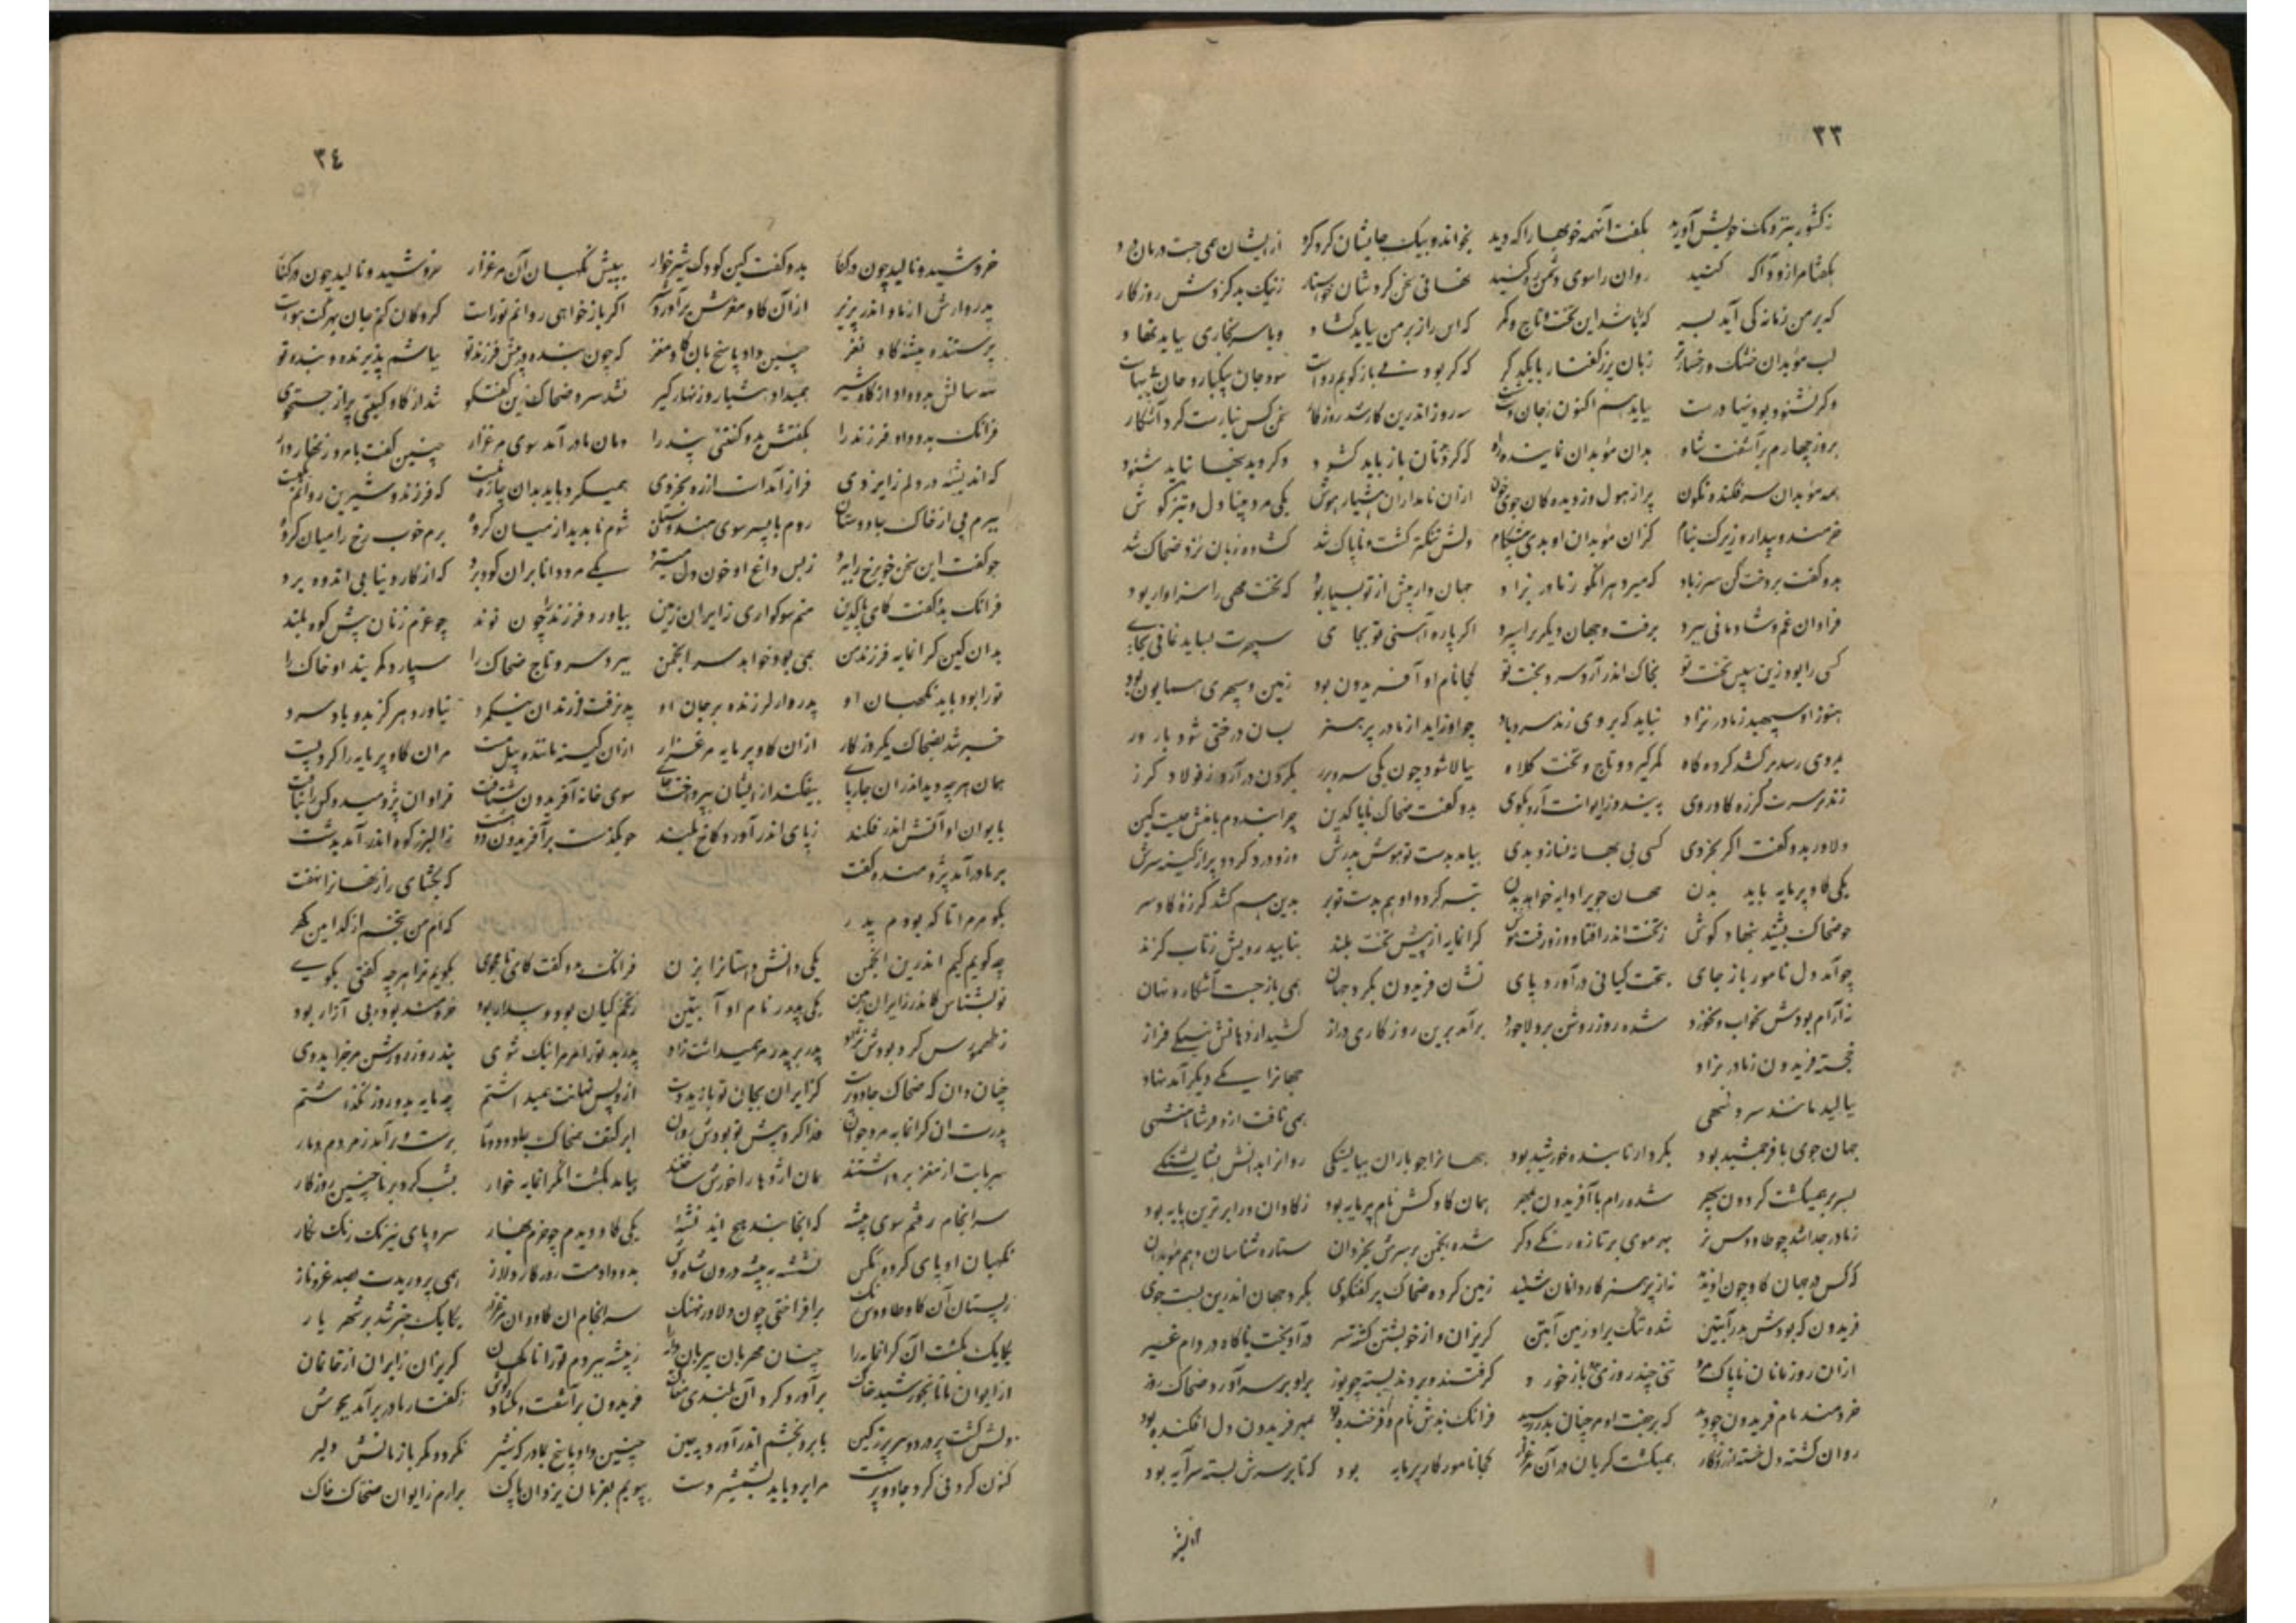 ٣٣
ز کشور بنزدیک خویش آورید بگفت آنهمه خوبها را که دید بخواند و بیک جایشان کرد کرد ازیشان همی جست درمان درد
بگفتا مرا زود آگه کنید روان را سوی روشنی ره کنید نهانی سخن کردشان خواستار ز نیک و بد گردش روزگار
که بر من زمانه کی آید بسر که باشد این تخت و تاج و کمر که این راز بر من بباید گشاد و یا سر بخواری بباید نهاد
لب موبدان خشک و رخساره تر زبان پر ز گفتار با یکدگر که گر بودنی باز گویم رواست شود جان بیکبار و جان بی بهاست
و گر نشنود بودنیها درست بباید هم اکنون ز جان دست شست سه روز اندرین کار شد روزگار سخن کس نیارست کرد آشکار
بروز چهارم برآشفت شاه بدان موبدان نماینده راه که گر زنده تان باز باید گشود و گر بودنیها بباید نمود
همه موبدان سر فکنده نگون پر از هول دل دیدگان جوی خون ازان نامداران بسیار هوش یکی مرد بینا دل و تیز گوش
خردمند و بیدار و زیرک بنام کزان موبدان او بدی پیشگام دلش تنگتر گشت و ناپاک شد گشوده زبان نزد ضحاک شد
بدو گفت پردخت کن سر ز باد که میرد هر آنکو ز مادر نزاد جهاندار پیش از تو بسیار بود که تخت مهی را سزاوار بود
فراوان غم و شادمانی سپرد برفت و جهان دیگری را سپرد اگر باره آهنینی بپای سپهرت بساید نمانی بجای
کسی را بود زین سپس تخت تو بخاک اندر آرد سر و بخت تو کجا نام او آفریدون بود زمین و سپهری همایون بود
هنوز او سپهبد ز مادر نزاد نیاید که بروی زند سرد باد چو او زاید از مادر پر هنر بسان درختی شود بارور
بمردی رسد برکشد گرده گاه کمر گیرد و تاج و تخت کلاه ببالا شود چون یکی سرو بر بگردن درآرد ز فولاد گرز
زند بر سرت گرزه گاوروی به بندد ز ایوانت آرد بکوی بدو گفت ضحاک ناپاک دین چرا بنددم با منش چیست کین
دلاور بدو گفت اگر بخردی کسی بی بهانه نسازد بدی بیاید بدست تو هوش پدرش وزو درد گردد پر از کینه سرش
یکی گاو پرمایه باید بدن جهان جوی را دایه خواهد بدن تبه گردد او هم بدست تو بر بدین هم کشد گرزه گاوسر
چو ضحاک بشنید بنهاد گوش ز تخت اندر افتاد وزو رفت هوش گرانمایه از پیش تخت بلند بتابید رویش ز تاب گزند
چو آمد دل نامور باز جای بتخت کیانی درآورد پای نشان فریدون بگرد جهان همی باز جست آشکار و نهان
نه آرام بودش نه خواب و نه خورد شده روز روشن برو لاجورد برآمد برین روزگاری دراز کشید اژدهافش بتنگی فراز
خجسته فریدون ز مادر بزاد جهان را یکی دیگر آمد نهاد
ببالید مانند سرو سهی همی تافت ازو فر شاهنشهی
جهان جوی با فر جمشید بود بکردار تابنده خورشید بود جهان را چو باران ببایستگی روان را بدانش بشایستگی
بسر بر همیگشت گردون سپهر شده رام با آفریدون بمهر همان گاو کش نام پرمایه بود ز گاوان ورا برترین پایه بود
ز مادر جدا شد چو طاووس نر بهر موی بر تازه رنگی دگر شده انجمن بر سرش بخردان ستاره شناسان و هم موبدان
که کس در جهان گاو چون او ندید نه از پیر سر کاردانان شنید زمین کرده ضحاک پر گفتگوی بگرد جهان اندرین جست جوی
فریدون که بودش پدر آبتین شده تنگ بر او زمین آبتین گریزان و از خویشتن گشته سیر درآویخت ناگاه در دام شیر
ازان روزبانان ناپاک مرد تنی چند روزی بدو باز خورد گرفتند و بردند بسته چو یوز برو بر سر آورد ضحاک روز
خردمند مام فریدون چو دید که بر جفت او بر چنان بد رسید فرانک بدش نام و فرخنده بود بمهر فریدون دل افکنده بود
روان گشته دل خسته از روزگار همیگشت گریان در آن مرغزار کجا نامور گاو پرمایه بود که تا بر سرش بسته سرآیه بود
٣٤
خروشید و نالید چون درکنار بدو گفت کین کودک شیرخوار به پیش نگهبان آن مرغزار خروشید و نالید چون درکنار
پدروارش از مادر اندر پذیر از آن گاو مغزش برآور اگر باز خواهی روانم تو راست گروگان کنم جان بهر کت هواست
پرستنده بیشه گاو نغز چنین داد پاسخ بآن پاک مغز که چون بنده در پیش فرزند تو باشم پذیرنده پند تو
سه سالش بدو داد از گاو شیر همیداد هشیار و زنهارگیر نشد سیر ضحاک زین گفتگو شد از گاو گیتی پر از جستجوی
فرانک بدو داد فرزند را بگفتش بدو گفتنی پند را دمان مادر آمد سوی مرغزار چنین گفت با مرد زنهاردار
که اندیشه در دلم ایزدی فراز آمداست از ره بخردی همیکرد باید بدان چاره نیست که فرزند و شیرین روانم یکیست
ببرم پی از خاک جادوستان روم با پسر سوی هندوستان شوم ناپدید از میان گروه برم خوب رخ را میان گروه
چو گفت این سخن خوب رخ را ببرد ز بس داغ او خون دل میسترد یکی مرد دانا بر آن کوه بود که از کار دنیا بی اندوه بود
فرانک بدو گفت کای پاکدین منم سوگواری ز ایران زمین بیاورد فرزند چون نوند چو غرم ژیان پیش کوه بلند
بدان کین گرانمایه فرزند من همی بود خواهد سر انجمن ببرد سر و تاج ضحاک را سپارد کمر بند او خاک را
تو را بود باید نگهبان او پدر وار لرزنده بر جان او پذیرفت فرزند آن نیک مرد نیاورد هرگز بدو باد سرد
خبر شد بضحاک یکروزگار ازان گاو پرمایه مرغزار ازان کینه مانند پیل مست مران گاو پرمایه را کرد پست
همان هرچه دید اندران چارپای بیفکند ازیشان بپرداخت جای سوی خانه آفریدون شتافت فراوان پژوهید و کس را نیافت
بایوان او آتش اندر فکند ز پای اندر آورد کاخ بلند چو بگذشت بر آفریدون دو هشت ز البرز کوه اندر آمد بدشت
بر مادر آمد پژوهنده گفت که بگشای راز نهان از نهفت
بگو مر مرا تا که بودم پدر که ام من بتخم از کدامین گهر
چه گویم کیم اندرین انجمن یکی دانش داستانرا بزن فرانک بدو گفت کای نامجوی بگویم ترا هرچه گفتی بگوی
تو بشناس کاندر ز ایران زمین یکی بد پدر نام او آبتین ز تخم کیان بود و بیدار بود خردمند بود و بی آزار بود
ز طهمورس گرد بودش نژاد پدر بر پدر بر همیداشت یاد پدر بد تو را مر مرا نیک شوی نبد روز روشن مرا جز بدوی
چنان دان که ضحاک جادوپرست کز ایران بجان تو یازید دست از و پس نهانت همیداشتم چه مایه بد روز بگذاشتم
پدرت آن گرانمایه مرد جوان فدا کرد پیش تو بودش روان ابر کتف ضحاک جادو دو مار برست و برآورد ز مردم دمار
سر بابت از مغز برداشتند مان اژدها را خورش ساختند بیامد بکشت آن گرانمایه خوار بشب کرد بر ما چنین روزگار
سرانجام رفتم سوی بیشه که آنجا نبد هیچ اندیشه یکی گاو دیدم چو خرم بهار سراپای نیرنگ رنگ نگار
نگهبان او پای کرده بکش نشسته به بیشه درون شاه وش بدو دادمت روزگار دراز همی پروریدت بصد عز و ناز
ز پستان آن گاو طاووس رنگ برافراختی چون دلاور نهنگ سرانجام آن گاو وان مرغزار یکایک خبر شد بر شهریار
یکایک بکشت آن گرانمایه را چنان مهربان بی زبان دایه را ز بیشه ببردم تو را ناگهان گریزان ز ایران از خانمان
از ایوان ما تا بخورشید خاک برآورد کرد آن بلندی مغاک فریدون برآشفت و بگشاد گوش ز گفتار مادر برآمد بجوش
دلش گشت پر درد و سر پر ز کین بابرو بخشم اندر آورد چین چنین داد پاسخ بمادر که شیر نگردد مگر بازمایش دلیر
کنون کردنی کرد جادوپرست مرا برد باید بشمشیر دست بپویم بفرمان یزدان پاک برآرم ز ایوان ضحاک خاک